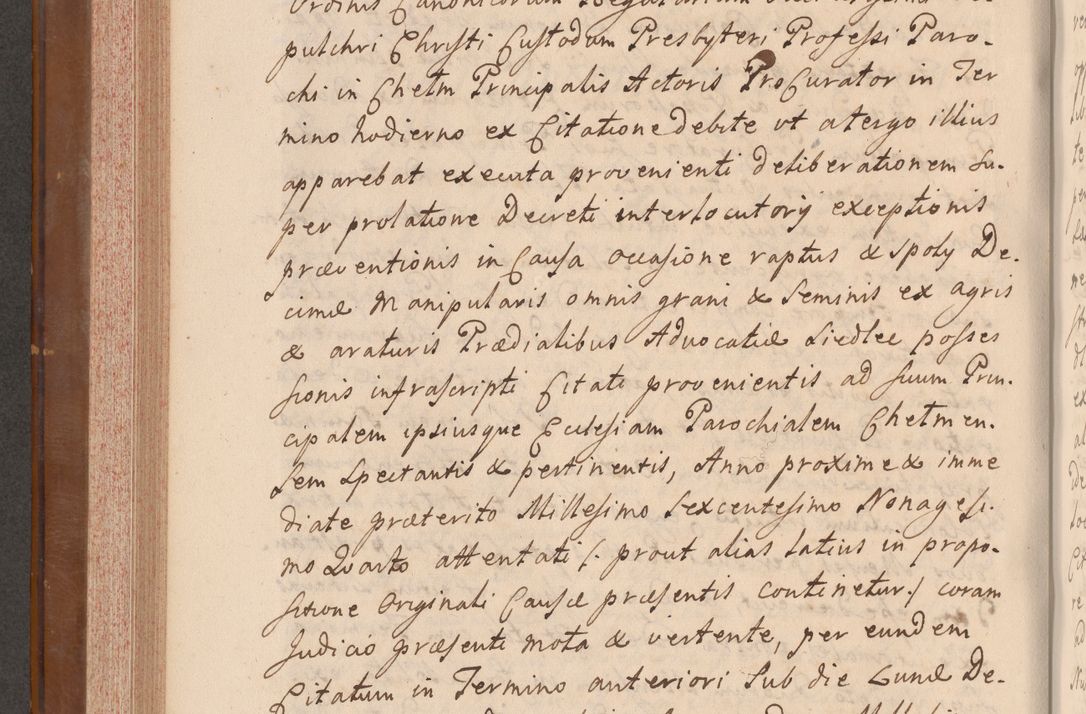 Ordinis Canonicorum Regularium
pulchri Christi Custodum Presbyteri Professi Paro-
chi in Chełm Principalis Actoris ProCurator in Ter
mino hodierno ex Citatione debite ut atergo illius
apparebat executa provenienti deliberationem Su-
per prolatione Decreti interlocutorij exceptionis
præventionis in Causa occasione raptus & spoly De-
cimæ Manipularis omnis grani & Seminis ex agris
& araturis Prædialibus Advocatiæ Siedlec posses
sionis infrascripti Citati provenientis ad suum Prin-
cipalem ipsiusque Ecclesiam Parochialem Chełmen-
sem Spectantis & pertinentis, Anno proxime & imme
diate præterito Millesimo Sexcentesimo Nonagesi-
mo Quarto attentati /. prout alias latius in propo-
sitione Originali Causæ præsentis continetur ./ coram
Judicio præsenti mota & vertente, per eundem
Citatum in Termino anteriori Sub die Lunæ De-